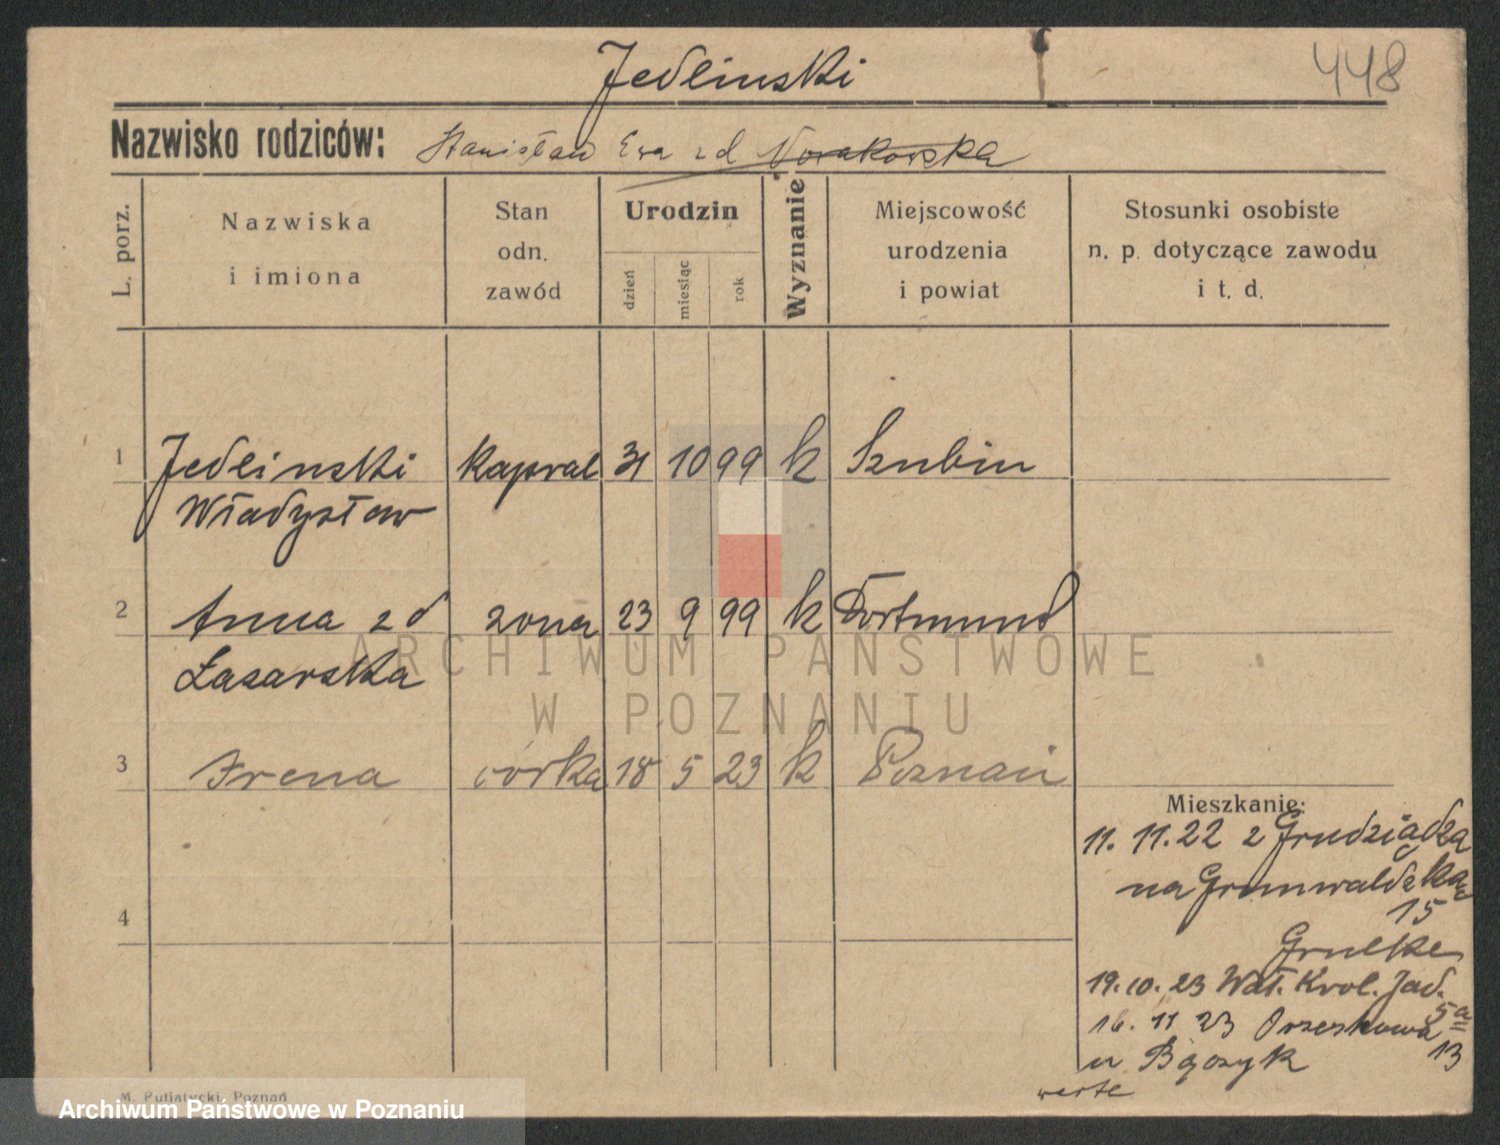 Jedlinski
448
Nazwisko rodziców: Stanisław Ewa zd Nowakowska
L. porz.
Nazwiska
i imiona
Stan
odn.
zawód
Urodzin
dzień
miesiąc
rok
Wyznanie
Miejscowość
urodzenia
i powiat
Stosunki osobiste
n. p. dotyczące zawodu
i t. d.
1 Jedlinski kapral 31 10 99 k Szubin
Władysław
2 Anna zd żona 23 9 99 k Dortmund
Łasarska
3 Irena córka 18 5 23 k Poznań
4
Mieszkanie:
11. 11. 22 z Grudziądza
na Grunwaldzka
15
Grulke
19. 10. 23 Wał. Krol. Jad.
5a
16. 11 23 Orzeskowa
13
u
verte
M. Putiatycki, Poznań
ARCHIWUM PAŃSTWOWE
W POZNANIU
Archiwum Państwowe w Poznaniu